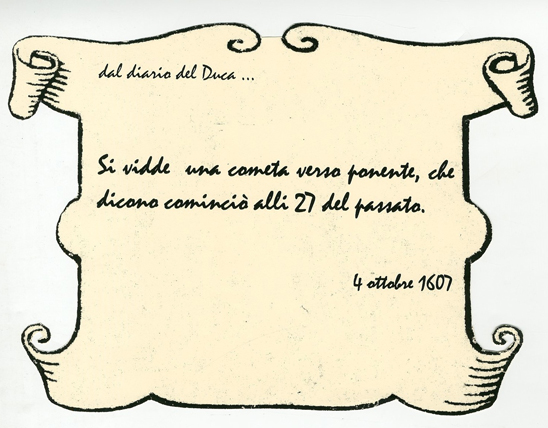 dal diario del Duca ...
Si vidde una cometa verso ponente, che
dicono cominciò alli 27 del passato.
4 ottobre 1607